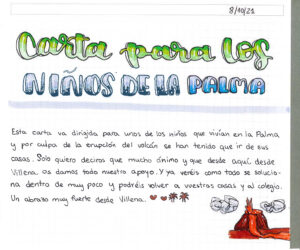 8/10/21
Carta para los
NIÑOS DE LA PALMA
Esta carta va dirigida para unos de los niños que vivían en la Palma
y por culpa de la erupción del volcán se han tenido que ir de sus
casas. Solo quiero deciros que mucho ánimo y que desde aquí, desde
Villena, os damos todo nuestro apoyo. Y ya veréis como todo se solucio-
na dentro de muy poco y podréis volver a vuestras casas y al colegio.
Un abrazo muy fuerte desde Villena.